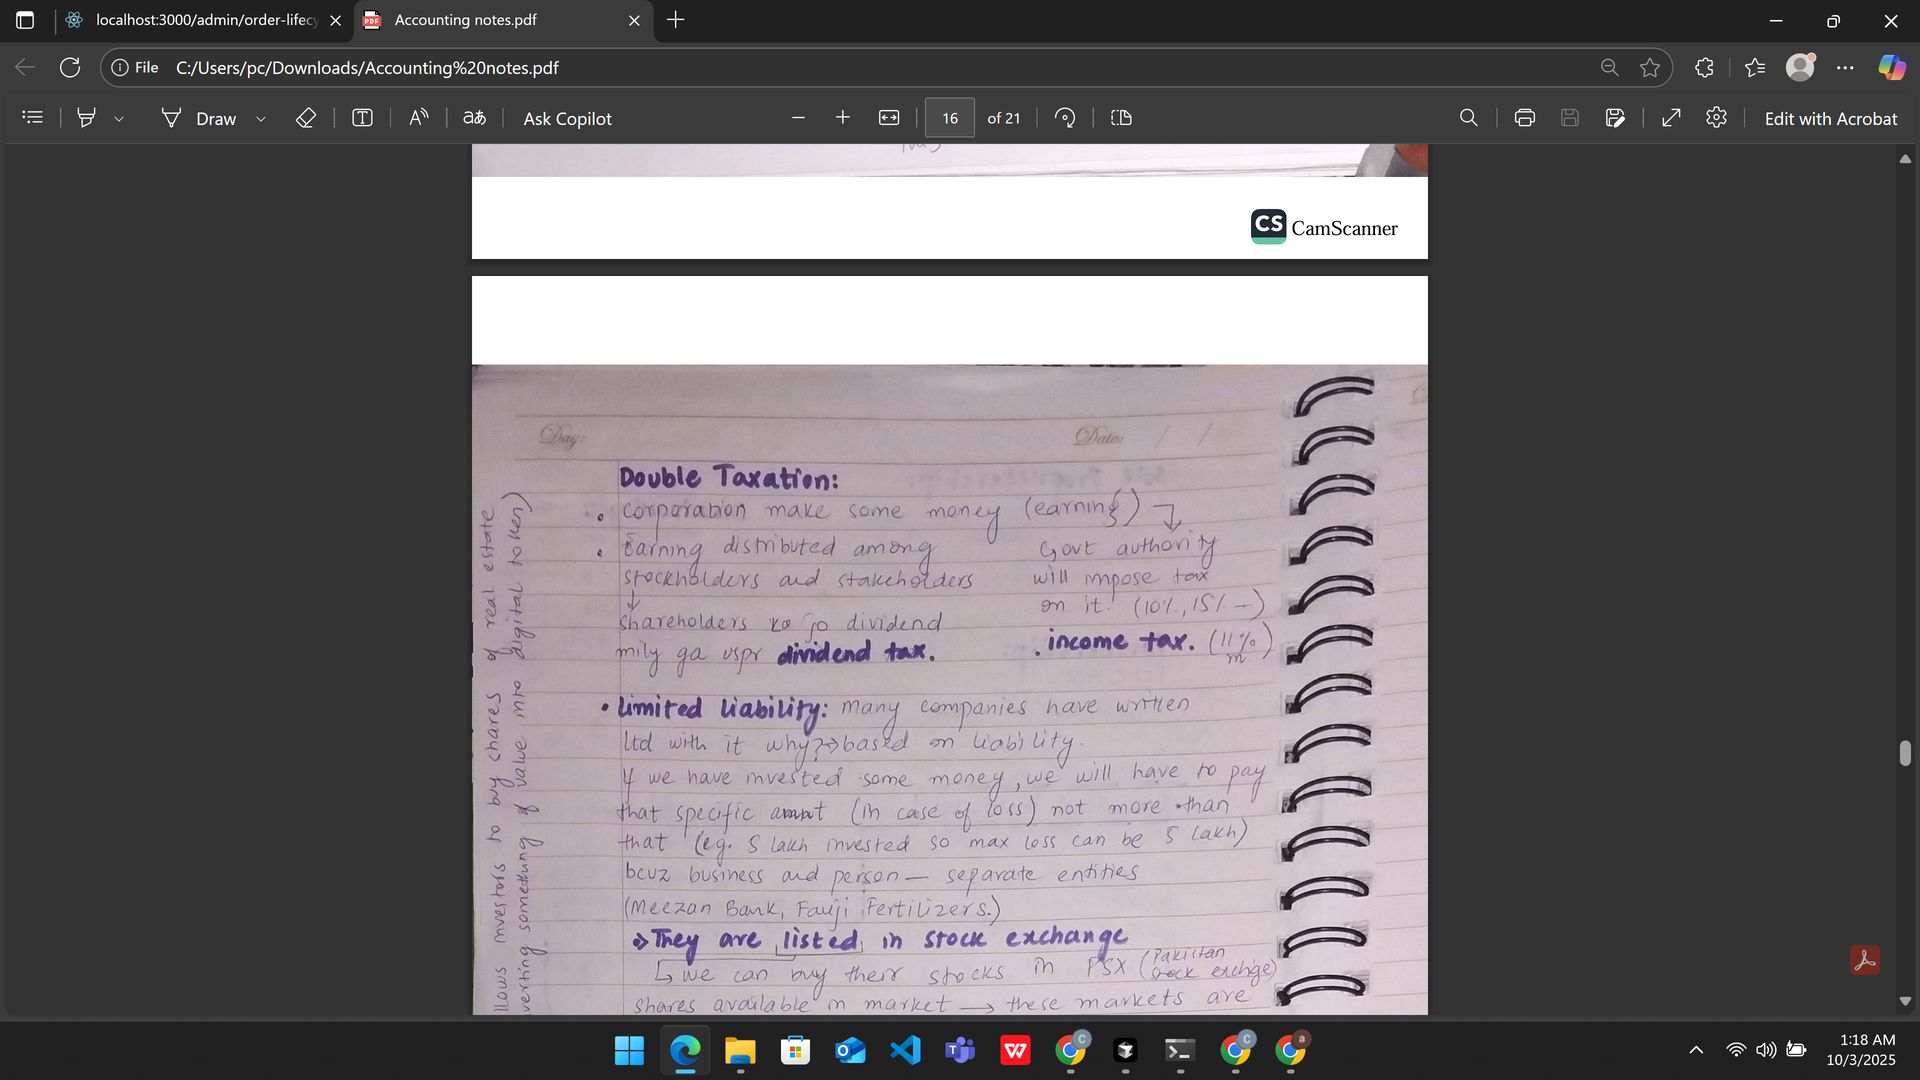 localhost:3000/admin/order-lifecy
Accounting notes.pdf
File
C:/Users/pc/Downloads/Accounting%20notes.pdf
Draw
Ask Copilot
16
of 21
Edit with Acrobat
CS CamScanner
Day:
Date: / /
Double Taxation:
• corporation make some money (earning)
• Earning distributed among
stockholders and stakeholders
↓
shareholders ko jo dividend
mily ga uspr dividend tax.
Govt authority
will impose tax
on it. (10%, 15% —)
. income tax. (11%)
• Limited liability: many companies have written
ltd with it why?→based on liability.
If we have invested some money, we will have to pay
that specific amnt (in case of loss) not more than
that (eg. 5 lakh invested so max loss can be 5 lakh)
bcuz business and person — separate entities
(Meezan Bank, Fauji Fertilizers.)
→ They are listed in stock exchange
↳ we can buy their stocks in PSX (Pakistan
stock exchnge)
shares available in market → these markets are
llows investors to buy shares of real estate
verting something of value into digital token)
1:18 AM
10/3/2025